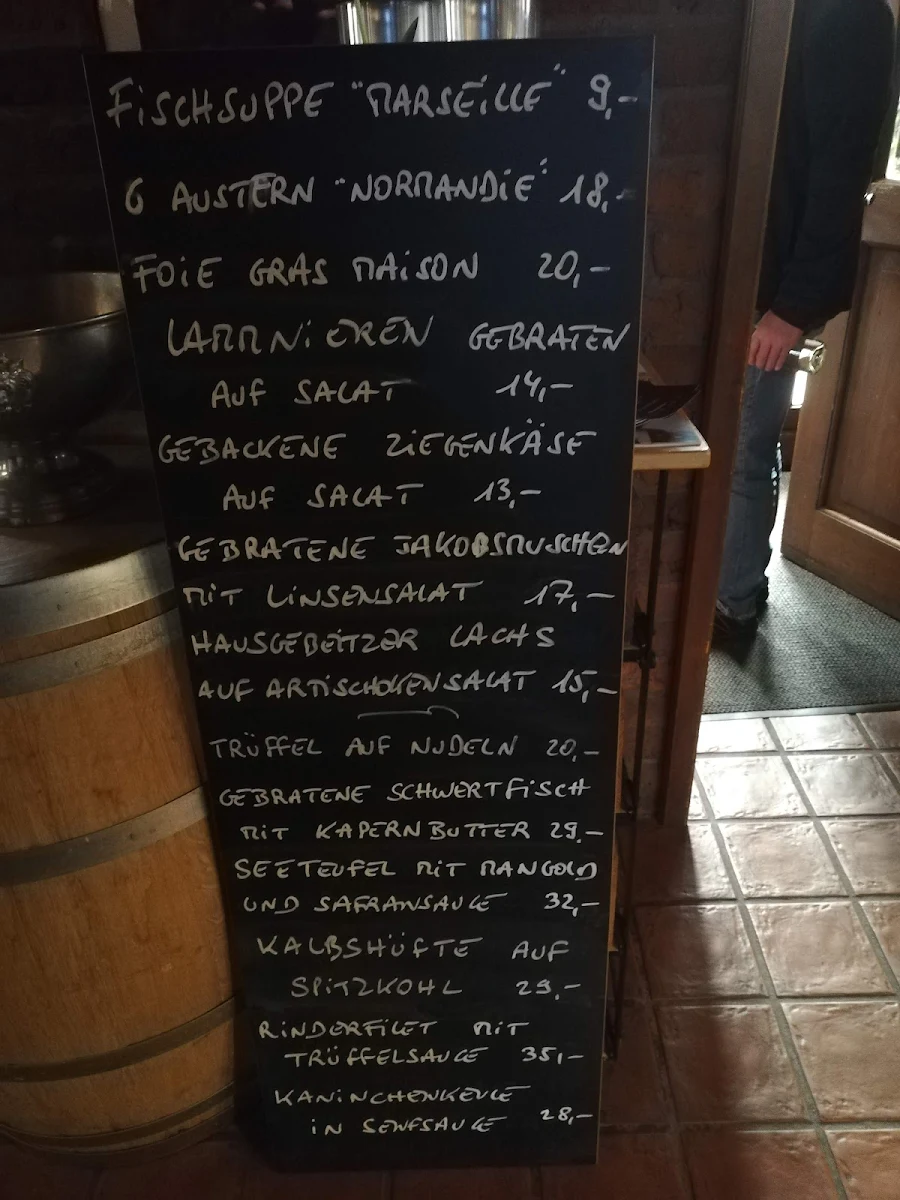 FISCHSUPPE "MARSEILLE" 9,-
6 AUSTERN "NORMANDIE" 18,-
FOIE GRAS MAISON 20,-
LAMMNIEREN GEBRATEN
AUF SALAT 14,-
GEBACKENE ZIEGENKÄSE
AUF SALAT 13,-
GEBRATENE JAKOBSMUSCHELN
MIT LINSENSALAT 17,-
HAUSGEBEITZER LACHS
AUF ARTISCHOKENSALAT 15,-
TRÜFFEL AUF NUDELN 20,-
GEBRATENE SCHWERTFISCH
MIT KAPERNBUTTER 29,-
SEETEUFEL MIT MANGOLD
UND SAFRANSAUCE 32,-
KALBSHÜFTE AUF
SPITZKOHL 29,-
RINDERFILET MIT
TRÜFFELSAUCE 35,-
KANINCHENKEULE
IN SENFSAUCE 28,-